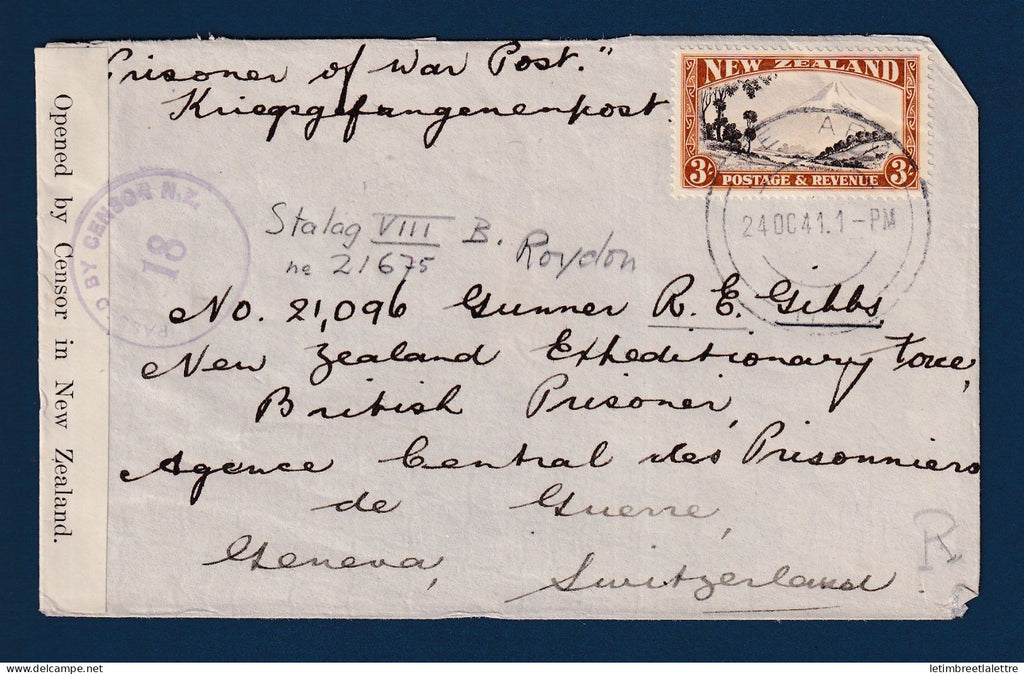 Prisoner of War Post."
Kriegsgefangenenpost.
NEW ZEALAND
3/- POSTAGE & REVENUE 3/-
24 OC 41.1-PM
Opened by Censor in New Zealand.
PASSED BY CENSOR N.Z.
18
Stalag VIII B.
no 21675
Roydon
No. 21,096 Gunner R. E. Gibbs,
New Zealand Expeditionary Force,
British Prisoner,
Agence Central des Prisonniers
de Guerre,
Geneva, Switzerland
R
www.delcampe.net
letimbreetlalettre